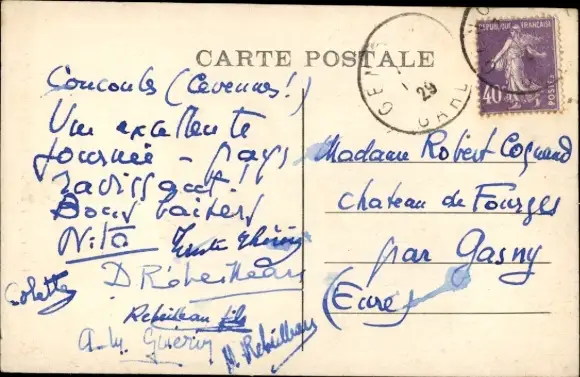 CARTE POSTALE
Concoules (Cevennes!)
Une excellente
journée - pays
ravissant!
Bons baisers
Nita
Colette
D. Rébeilleau
Rebeilleau fils
A-M. Guérin
Rebeilleau
GARD
29
REPUBLIQUE FRANÇAISE
40
POSTES
Madame Robert Cognard
Chateau de Fourges
par Gasny
(Eure)